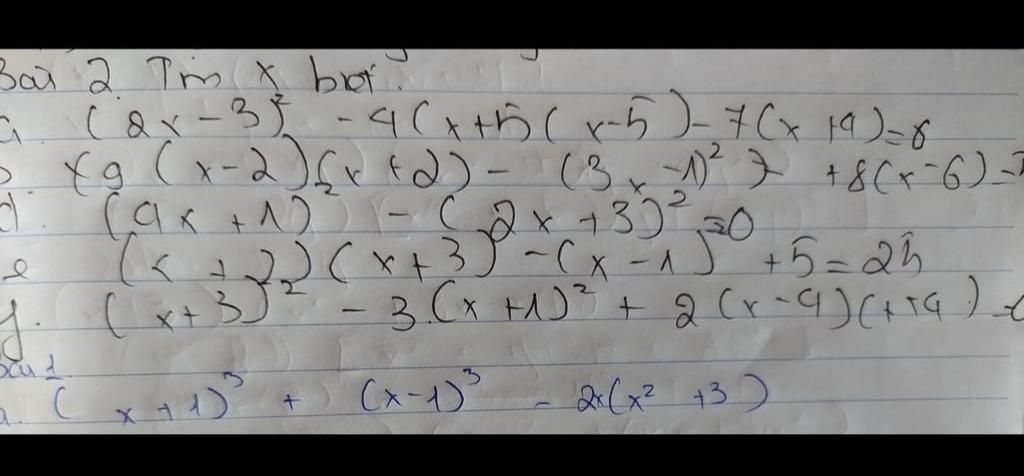 Bài 2. Tìm x biết.
a. (2x-3)² - 4(x+5(x-5)-7(x+4)=8
b. x9(x-2)(x+2) - (3x-1)² + 8(x-6)=
d. (4x+1)² - (2x+3)²=0
e (x+2)(x+3)-(x-1) +5=25
g. (x+3)² - 3.(x+1)² + 2(x-4)(x+4)=
Bài 1
a. (x+1)³ + (x-1)³ - 2x(x²+3)